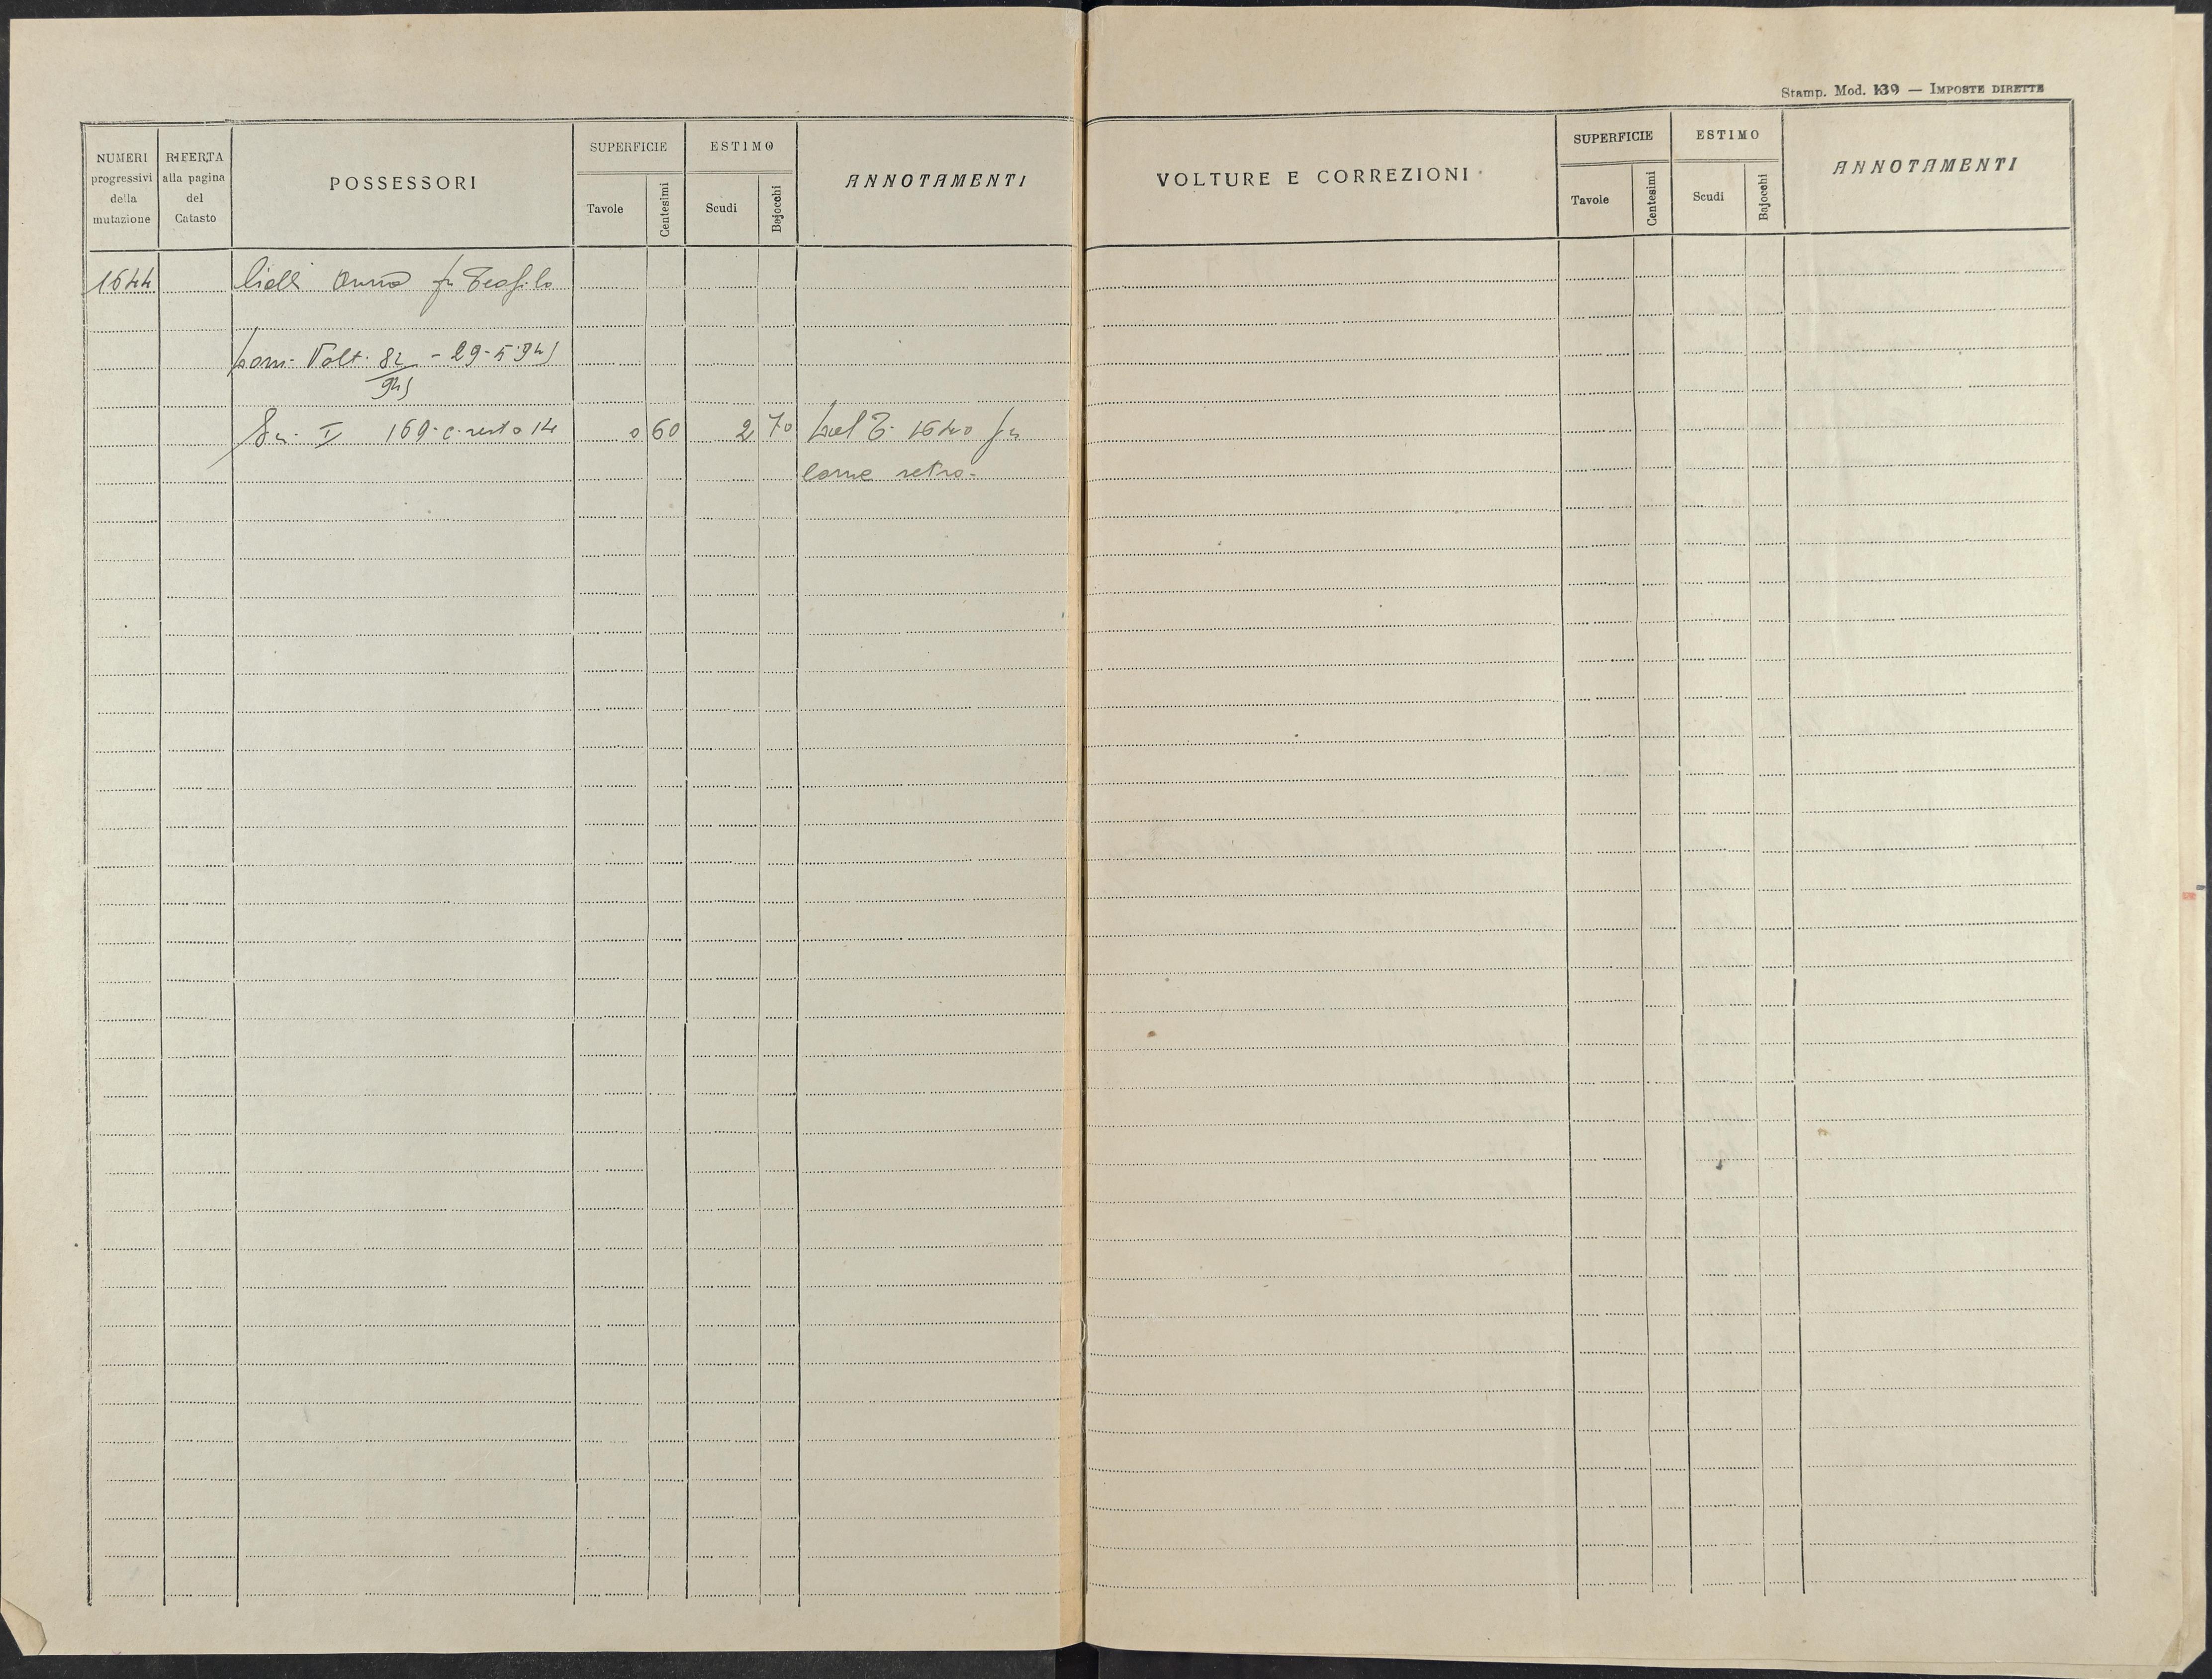 Stamp. Mod. 139 — IMPOSTE DIRETTE
NUMERI progressivi della mutazione
RIFERTA alla pagina del Catasto
POSSESSORI
SUPERFICIE
Tavole
Centesimi
ESTIMO
Scudi
Bajocchi
ANNOTAMENTI
VOLTURE E CORREZIONI
SUPERFICIE
Tavole
Centesimi
ESTIMO
Scudi
Bajocchi
ANNOTAMENTI
1644 Anna fu Teofilo
Volt. 82 - 29-5-945
945
169. c. resto 14 0 60 2 70 1640 fu
come retro.